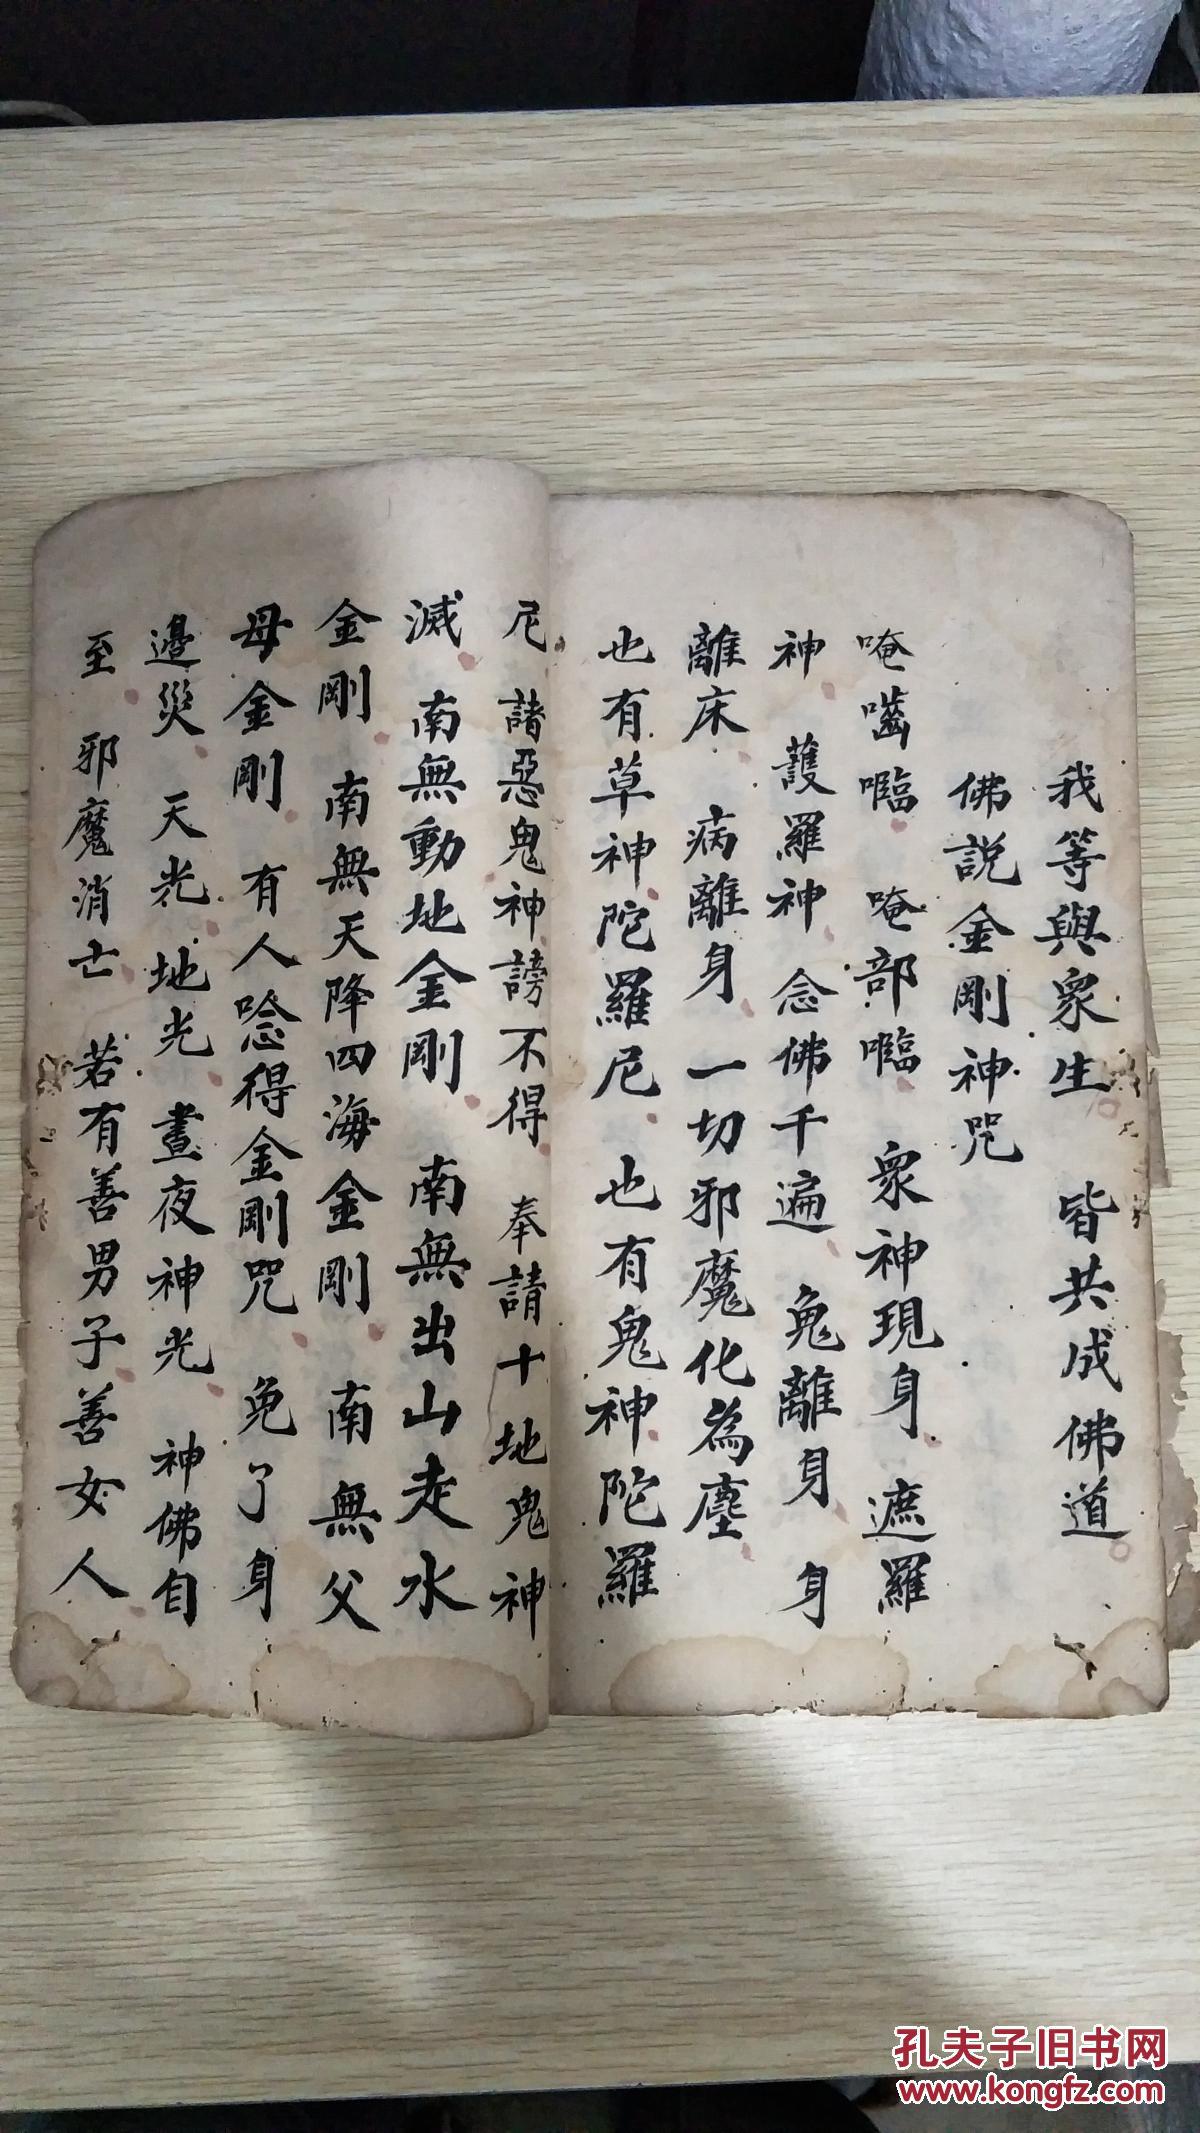 我等與衆生 皆共成佛道
佛説金剛神咒
唵嚙𡄯 唵部𡄯 衆神現身 遮羅
神 護羅神 念佛千遍 鬼離身 身
離床 病離身 一切邪魔化為塵
也有草神陀羅尼 也有鬼神陀羅
尼 諸惡鬼神謗不得 奉請十地鬼神
滅 南無動地金剛 南無出山走水
金剛 南無天降四海金剛 南無父
母金剛 有人唸得金剛咒 免了身
邊災 天光地光 晝夜神光 神佛自
至 邪魔消亡 若有善男子善女人
孔夫子旧书网
www.kongfz.com